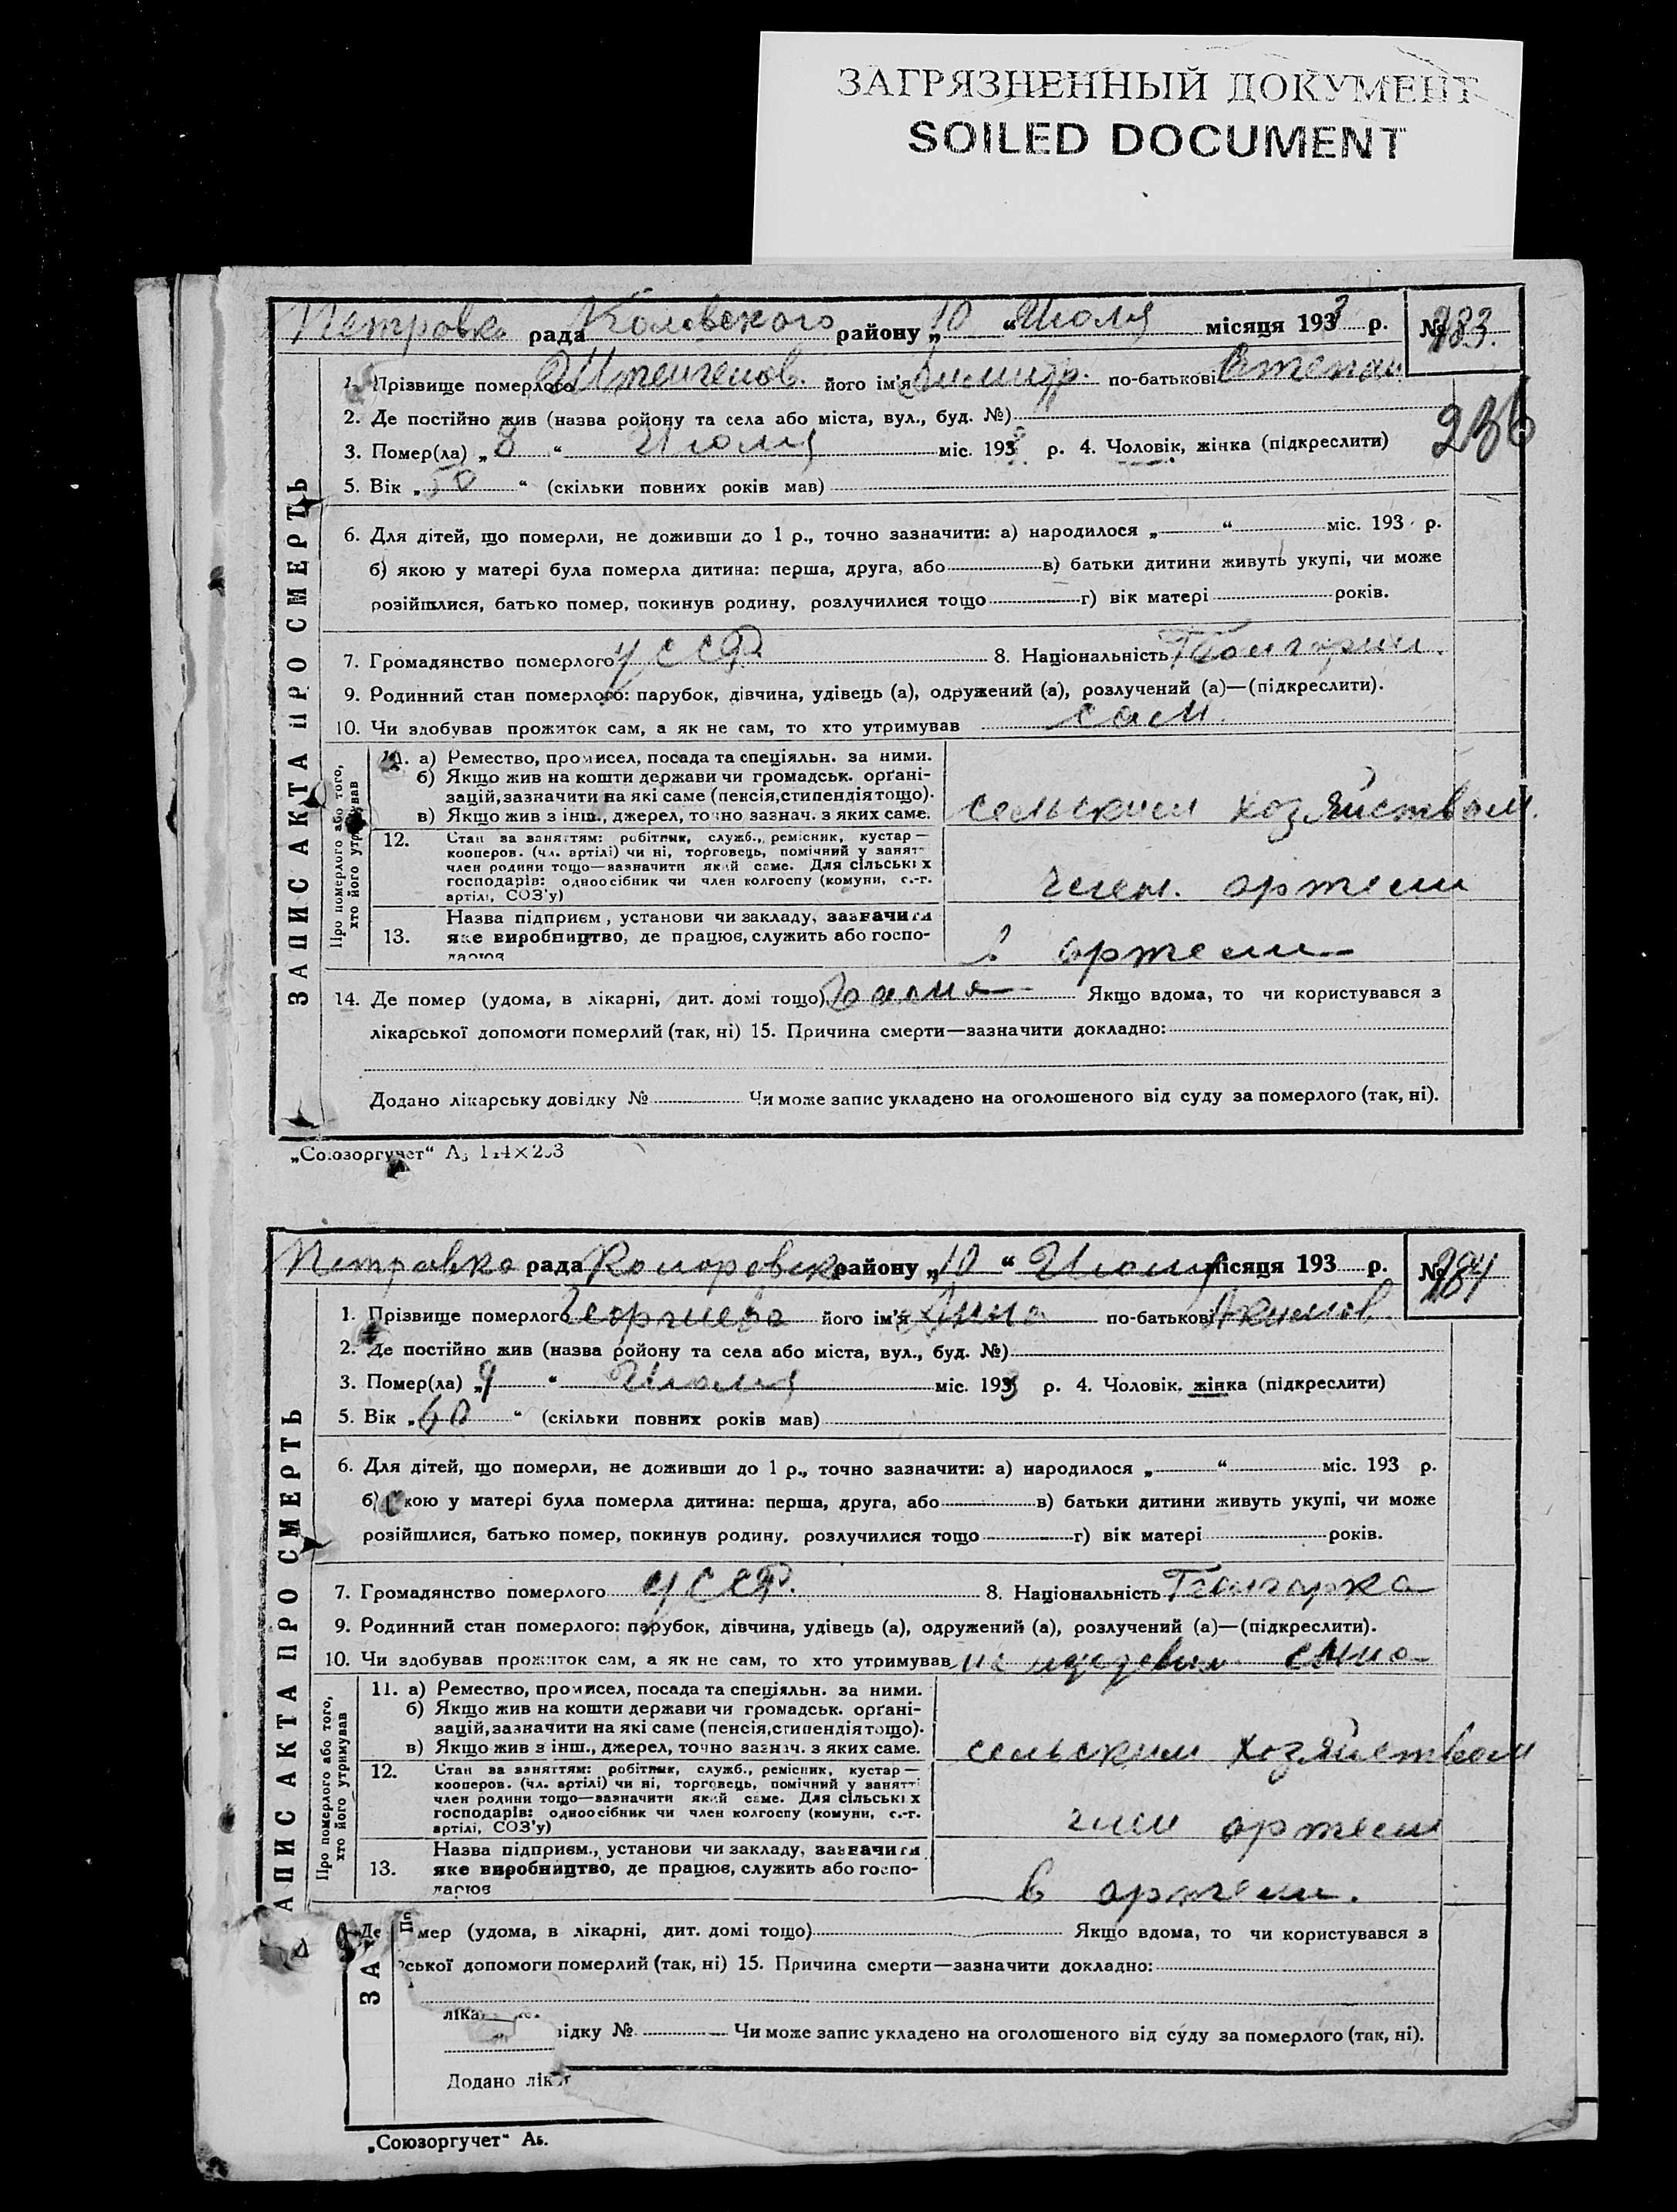 ЗАГРЯЗНЕННЫЙ ДОКУМЕНТ
SOILED DOCUMENT
Петровка рада района „10 “ Июля місяця 1933 р. № 183.
236
1. Прізвище померлого його ім'я по-батькові Степан
2. Де постійно жив (назва ройону та села або міста, вул., буд. №)
3. Помер(ла) „8 “ Июля міс. 193 р. 4. Чоловік, жінка (підкреслити)
5. Вік „50 “ (скільки повних років мав)
6. Для дітей, що померли, не доживши до 1 р., точно зазначити: а) народилося „ “ міс. 193 р.
б) якою у матері була померла дитина: перша, друга, або в) батьки дитини живуть укупі, чи може
розійшлися, батько помер, покинув родину, розлучилися тощо г) вік матері років.
7. Громадянство померлого УССР 8. Національність Болгарин.
9. Родинний стан померлого: парубок, дівчина, удівець (а), одружений (а), розлучений (а)—(підкреслити).
10. Чи здобував прожиток сам, а як не сам, то хто утримував сам.
ЗАПИС АКТА ПРО СМЕРТЬ
Про померлого або того,
хто його утримував
11. а) Ремество, промисел, посада та спеціяльн. за ними.
б) Якщо жив на кошти держави чи громадськ. орґані-
зацій, зазначити на які саме (пенсія, стипендія тощо).
в) Якщо жив з інш., джерел, точно зазнач. з яких саме.
сельским хозяйством.
12. Стан за заняттям: робітник, служб., ремісник, кустар—
кооперов. (чл. артілі) чи ні, торговець, помічний у занятт
член родини тощо—зазначити який саме. Для сільських
господарів: одноосібник чи член колгоспу (комуни, с.-г.
артілі, СОЗ'у)
член. артели
Назва підприєм., установи чи закладу, зазначити
13. яке виробництво, де працює, служить або госпо-
дарює
в артели
14. Де помер (удома, в лікарні, дит. домі тощо) дома Якщо вдома, то чи користувався з
лікарської допомоги померлий (так, ні) 15. Причина смерти—зазначити докладно:
Додано лікарську довідку № Чи може запис укладено на оголошеного від суду за померлого (так, ні).
„Союзоргучет“
Петровка рада району „10 “ Июля місяця 193 р. № 184
1. Прізвище померлого Георгиева його ім'я Анна по-батькові
2. Де постійно жив (назва ройону та села або міста, вул., буд. №)
3. Помер(ла) „9 “ Июля міс. 1933 р. 4. Чоловік, жінка (підкреслити)
5. Вік „60 “ (скільки повних років мав)
6. Для дітей, що померли, не доживши до 1 р., точно зазначити: а) народилося „ “ міс. 193 р.
б) якою у матері була померла дитина: перша, друга, або в) батьки дитини живуть укупі, чи може
розійшлися, батько помер, покинув родину, розлучилися тощо г) вік матері років.
7. Громадянство померлого УССР. 8. Національність Болгарка
9. Родинний стан померлого: парубок, дівчина, удівець (а), одружений (а), розлучений (а)—(підкреслити).
10. Чи здобував прожиток сам, а як не сам, то хто утримував на иждевен. сына
АПИС АКТА ПРО СМЕРТЬ
Про померлого або того,
хто його утримував
11. а) Ремество, промисел, посада та спеціяльн. за ними.
б) Якщо жив на кошти держави чи громадськ. орґані-
зацій, зазначити на які саме (пенсія, стипендія тощо).
в) Якщо жив з інш., джерел, точно зазнач. з яких саме.
сельским хозяйством
12. Стан за заняттям: робітник, служб., ремісник, кустар—
кооперов. (чл. артілі) чи ні, торговець, помічний у занятті
член родини тощо—зазначити який саме. Для сільських
господарів: одноосібник чи член колгоспу (комуни, с.-г.
артілі, СОЗ'у)
член артели
Назва підприєм., установи чи закладу, зазначити
13. яке виробництво, де працює, служить або госпо-
дарює
в артели.
Де мер (удома, в лікарні, дит. домі тощо) Якщо вдома, то чи користувався з
ської допомоги померлий (так, ні) 15. Причина смерти—зазначити докладно:
ЗА
ліка
відку № Чи може запис укладено на оголошеного від суду за померлого (так, ні).
Додано лік
„Союзоргучет“ А5.